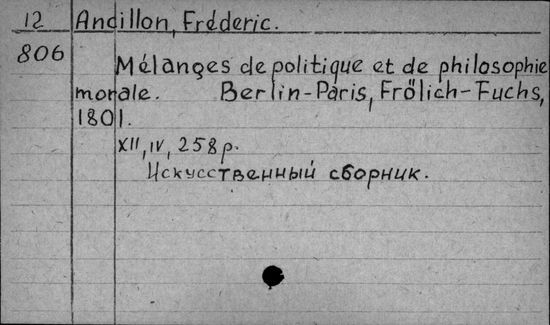 12 Ancillon, Fréderic.
806 Mélanges de politique et de philosophie
morale. Berlin-Paris, Frölich-Fuchs,
1801.
XII, IV, 258 p.
Искусственный сборник.